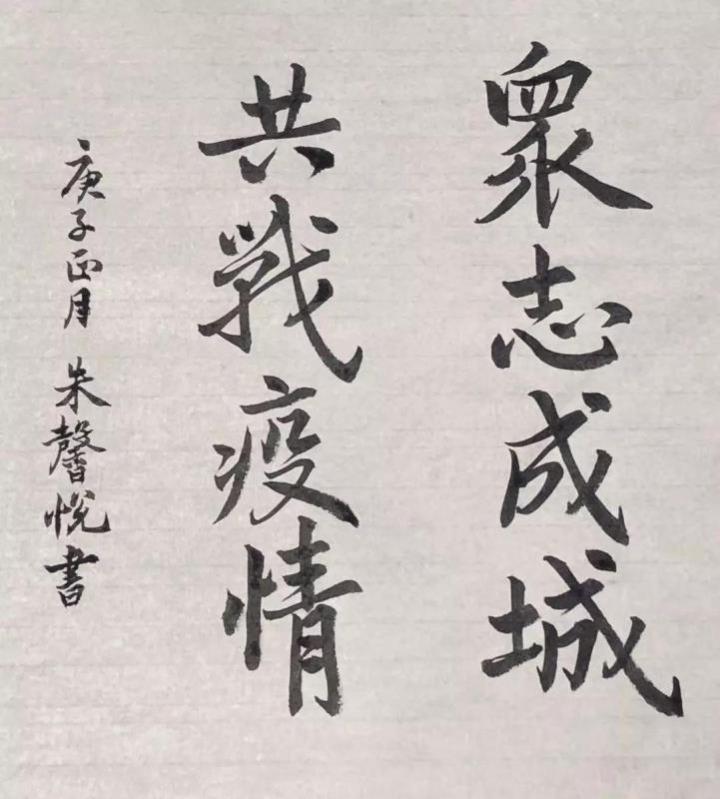 眾志成城
共戰疫情
庚子正月 朱馨悅書